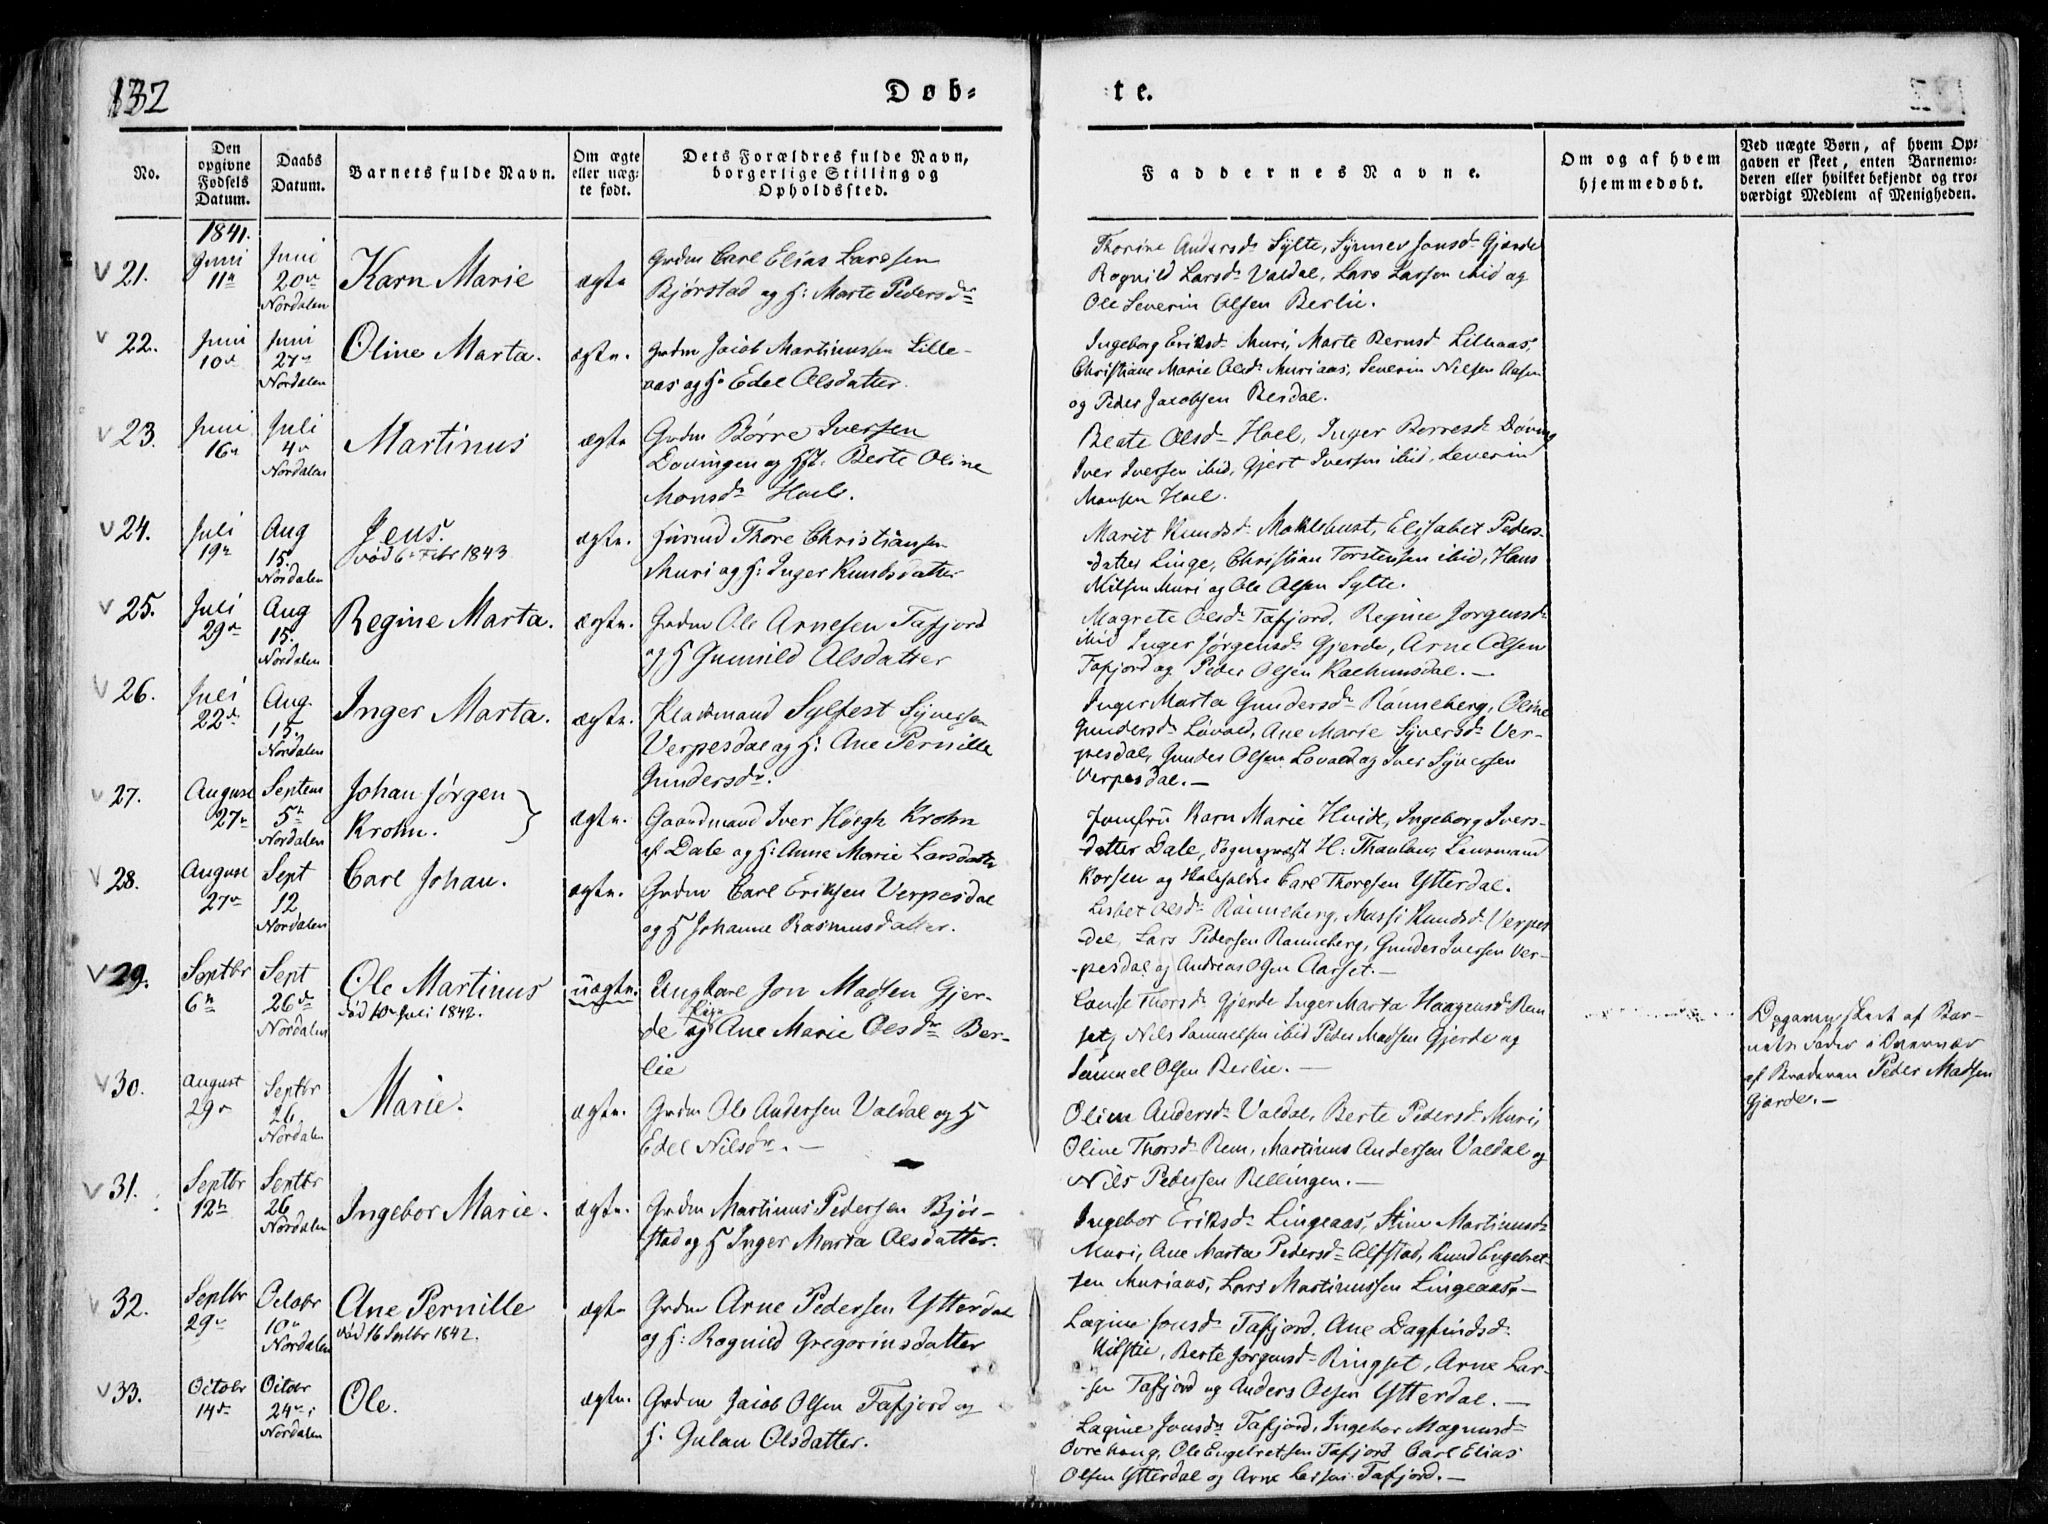 132
Døb-
te.
No.
Den opgivne Fødsels Datum.
Daabs Datum.
Barnets fulde Navn.
Om ægte eller uægte født.
Dets Forældres fulde Navn, borgerlige Stilling og Opholdssted.
Faddernes Navne.
Om og af hvem hjemmedøbt.
Ved uægte Børn, af hvem Opgaven er skeet, enten Barnemoderen eller hvilket bekjendt og troværdigt Medlem af Menigheden.
1841.
21.
Juni 11te
Juni 20de Nordalen
Karn Marie
ægte
Grdm Carl Elias Larssen
Bjørstad og H: Marte Pedersdr
Thorine Andersdr Sylte, Synnev Jonsdr Gjerde
Rognild Larsdr Valdal, Lars Larsen ibid og
Ole Severin Olsen Berlie.
22.
Juni 10de
Juni 27de Nordalen
Oline Marta.
ægte.
Grdm Jacob Martinussen Lille-
aas og H. Edel Olsdatter.
Ingeborg Eriksdr Muri, Marte Berntsd Lilleaas,
Christiane Marie Olsdr Muriaas, Severin Nilsen Aasen
og Peder Jacobsen Berdal.
23.
Juni 16de
Juli 4de Nordalen
Martinus
ægte
Grdm Børre Iversen
Døvingen og H: Berte Oline
Monsdr Hoel.
Beate Olsdr Hoel, Inger Børresdr Døving
Iver Iversen ibid, Gjert Iversen ibid, Severin
Monsen Hoel.
24.
Juli 19de
Aug 15. Nordalen
Jens.
død 6te Febr 1843
ægte.
Huusmd Thore Christiansen
Muri og H: Inger Knudsdatter
Marit Knudsd Møklebust, Elisabet Peders-
datter Linge, Christian Torstensen ibid, Hans
Nilsen Muri og Ole Olsen Sylte.
25.
Juli 29de
Aug 15. Nordalen
Regine Marta.
ægte.
Grdm Ole Arnesen Tafjord
og H Gunnild Olsdatter
Magrete Olsdr Tafjord, Regine Jørgensdr
ibid Inger Jørgensdr Gjerde, Arne Olsen
Tafjord og Peder Olsen Kaldhusdal.—
26.
Juli 22de
Aug. 15. Nordalen
Inger Marta.
ægte.
Pladsmand Sylfest Syversen
Verpesdal og H: Ane Pernille
Gundersdr.
Inger Marta Gundersdr Rønneberg, Oline
Gundersdr Løvold, Ane Marie Syversdr Ver-
pesdal, Gunder Olsen Løvold og Iver Syversen
Verpesdal.—
27.
August 27de
Septem 5te Nordalen
Johan Jørgen
Krohn.
ægte.
Gaardmand Iver Høegh Krohn
af Dale og H: Anne Marie Larsdatter
Jomfru Karn Marie Hvide, Ingeborg Ivers-
datter Dale, Sognepræst H: Thaulow, Lensmand
Korsen og Skoleholder Carl Thoresen Ytterdal.
28.
August 27de
Sept 12 Nordalen
Carl Johan.
ægte.
Grdm Carl Eriksen Verpesdal
og H Johanne Rasmusdatter.
Lisbet Olsdr Rønneberg, Massi Knudsdr Verpes-
dal, Lars Pedersen Rønneberg, Gunder Iversen Ver-
pesdal og Andreas Olsen Aarset.—
29.
Septbr 6te
Sept 26de Nordalen
Ole Martinus
død 10de Juli 1842.
uægte.
Ungkarl Jon Madsen Gjer-
de og Pige Ane Marie Olsdr Ber-
lie
Lovise Thorsdr Gjerde Inger Marta Haagensdr Rem
set, Nils Samuelsen ibid Peder Madsen Gjerde og
Samuel Olsen Berlie.—
Opgaven skeet af Bar-
nets Fader i Overvær
af Broderen Peder Madsen
Gjerde.—
30.
August 29de
Septbr 26 Nordalen
Marie.
ægte.
Grdm Ole Andersen Valdal og H
Edel Nilsdr.—
Oline Andersdr Valdal, Berte Pedersdr Muri,
Oline Thorsdr Rem, Martinus Andersen Valdal og
Nils Pedersen Rellingen.—
31.
Septbr 12te
Septbr 26 Nordalen
Ingebor Marie.
ægte.
Grdm Martinus Pedersen Bjør-
stad og H Inger Marta Olsdatter.
Ingebor Eriksdr Lingeaas, Stine Martinusdr
Muri, Ane Marta Pedersdr Alfstad, Knud Engebret-
sen Muriaas, Lars Martinussen Lingeaas.—
32.
Septbr 29de
Octobr 10de Nordalen
Ane Pernille
død 16 Septbr 1842.
ægte
Grdm Arne Pedersen Ytterdal
og H: Rognild Gregoriusdatter
Lagine Jonsdr Tafjord, Ane Dagfindsdr
Kilstie, Berte Jørgensdr Ringset, Arne Lar-
sen Tafjord og Anders Olsen Ytterdal.—
33.
Octobr 14de
Octobr 24de i Nordalen
Ole.
ægte.
Grdm Jacob Olsen Tafjord og
H: Gulau Olsdatter.
Lagine Jonsdr Tafjord, Ingebor Magnusdr
Ovrehaug, Ole Engebretsen Tafjord Carl Elias
Olsen Ytterdal og Arne Larsen Tafjord.—